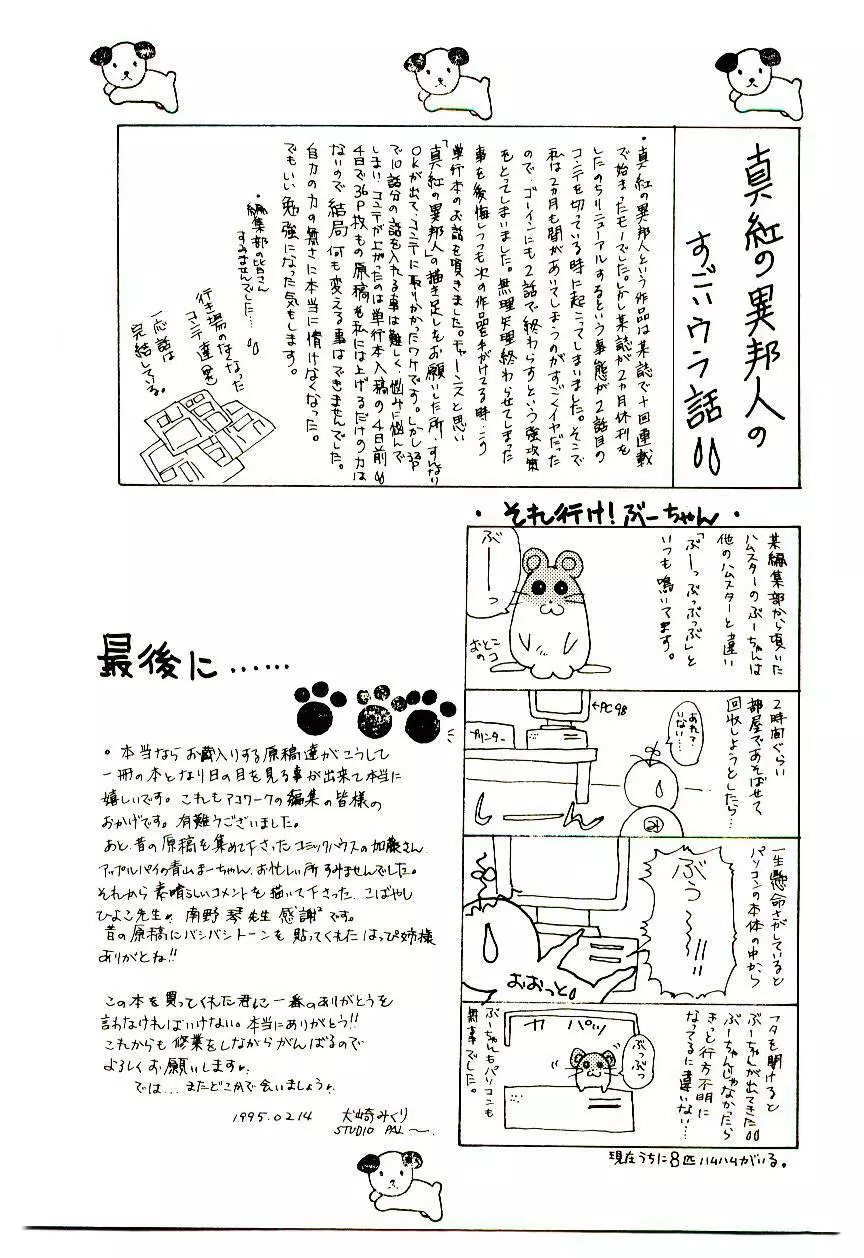 真紅の異邦人の
すごいウラ話
・真紅の異邦人という作品は某誌で十回連載
で始まったモノでした。しかし某誌が2ヵ月休刊を
したのちリニューアルするという事態が2話目の
コンテを切っている時に起こってしまいました。そこで
私は2ヵ月も間があいてしまうのがすごくイヤだった
ので、ゴーインにも2話で終わらすという強攻策
をとってしまいました。無理矢理終わらせてしまった
事を後悔しつつも次の作品を手がけてる時、この
単行本のお話を頂きました。チャーンスと思い
「真紅の異邦人」の描き足しをお願いした所、すんなり
OKが出て、コンテに取りかかったワケです。しかし32P
で10話分の話を入れる事は難しく、悩みに悩んで
しまい、コンテが上がったのは単行本入稿の4日前
4日で36P枚もの原稿を私には上げるだけの力は
ないので結局何も変える事はできませんでした。
自分の力の無さに本当に情けなくなった。
でもいい勉強になった気もします。
・編集部の皆さん
すみませんでした…
行き場のなくなった
コンテ達
一応話は
完結している。
・それ行け!ぶーちゃん・
某編集部から頂いた
ハムスターのぶーちゃんは
他のハムスターと違い
「ぶーっぶっぶっぶ」と
いつも鳴いてます。
ぶーっ
おとこのコ
2時間ぐらい
部屋であそばせて
回収しようとしたら…
←PC98
プリンター
あれ?
いない…
しーん
一生懸命さがしていると
パソコンの本体の中から
ぶぅ〜〜!!
おおっと。
フタを開けると
ぶーちゃんが出てきた
ぶーちゃんじゃなかったら
きっと行方不明に
なってるに違いない…
カパッ
ぶっぶっ
ぶーちゃんもパソコンも
無事でした。
現在うちに8匹ハムハムがいる。
最後に……
・本当ならお蔵入りする原稿達がこうして
一冊の本となり日の目を見る事が出来て本当に
嬉しいです。これもアコワークの編集の皆様の
おかげです。有難うございました。
あと、昔の原稿を集めて下さったコミックハウスの加藤さん
アップルパイの青山まーちゃん、お忙しい所すみませんでした。
それから素晴らしいコメントを描いて下さった、こばやし
ひよこ先生 南野琴先生感謝²です。
昔の原稿にバシバシトーンを貼ってくれたはっぴ姉様
ありがとね!!
この本を買ってくれた君に一番のありがとうを
言わなければいけない。本当にありがとう!!
これからも修業をしながらがんばるので
よろしくお願いします
では…またどこかで会いましょう
1995.02.14 犬崎みくり
STUDIO PAL